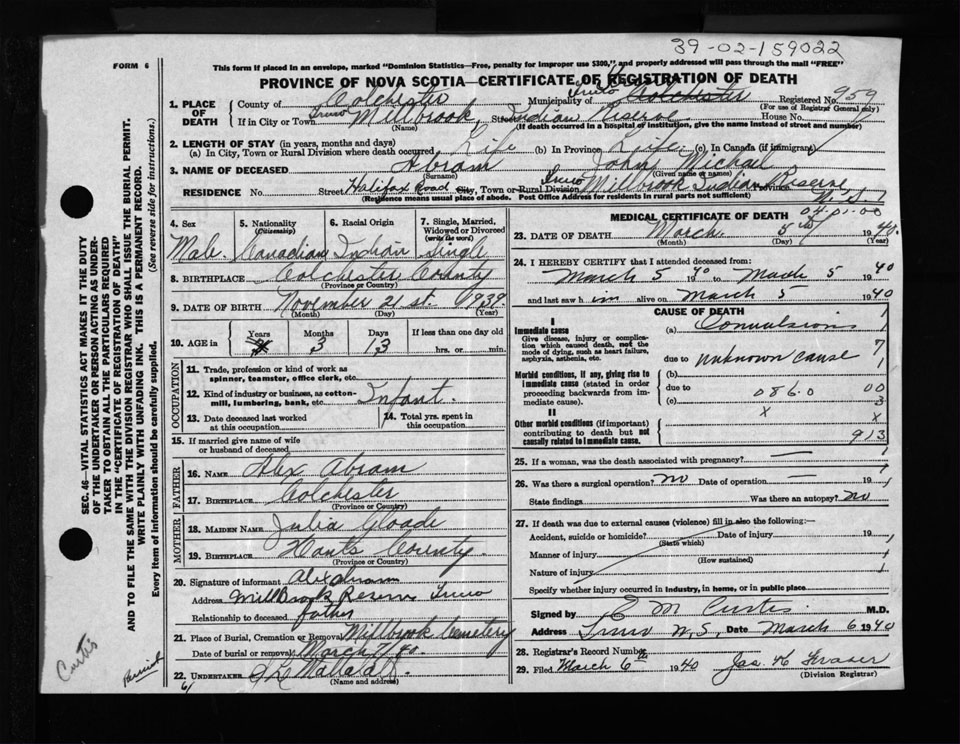 39-02-159022
FORM 6
This form if placed in an envelope, marked "Dominion Statistics—Free, penalty for improper use $300," and properly addressed will pass through the mail "FREE"
PROVINCE OF NOVA SCOTIA—CERTIFICATE OF REGISTRATION OF DEATH
1. PLACE OF DEATH
County of Colchester Municipality of Truro Colchester Registered No. 959
(For use of Registrar General only)
If in City or Town Truro Millbrook, Street Indian Reserve House No.
(Name) (If death occurred in a hospital or institution, give the name instead of street and number)
2. LENGTH OF STAY (in years, months and days)
(a) In City, Town or Rural Division where death occurred Life (b) In Province Life. (c) In Canada (if immigrant)
3. NAME OF DECEASED Abram John Michael
(Surname) (Given name or names)
RESIDENCE No. Street Halifax Road City, Town or Rural Division Truro Millbrook Indian Reserve, Province N.S.
(Residence means usual place of abode. Post Office Address for residents in rural parts not sufficient)
4. Sex
Male.
5. Nationality (Citizenship)
Canadian
6. Racial Origin
Indian
7. Single, Married, Widowed or Divorced (write the word)
Single
8. BIRTHPLACE Colchester County
(Province or Country)
9. DATE OF BIRTH November 21st. 1939.
(Month) (Day) (Year)
10. AGE in
Years Months Days If less than one day old
3 13 hrs. or min.
OCCUPATION
11. Trade, profession or kind of work as spinner, teamster, office clerk, etc.
12. Kind of industry or business, as cotton-mill, lumbering, bank, etc. Infant.
13. Date deceased last worked at this occupation
14. Total yrs. spent in this occupation
15. If married give name of wife or husband of deceased
FATHER
16. NAME Alex Abram
17. BIRTHPLACE Colchester
(Province or Country)
MOTHER
18. MAIDEN NAME Julia Gloade
19. BIRTHPLACE Hants County.
(Province or Country)
20. Signature of informant Alex Abram
Address Millbrook Reserve Truro
Relationship to deceased father
21. Place of Burial, Cremation or Removal Millbrook Cemetery
Date of burial or removal March 7/40.
22. UNDERTAKER
(Name and address)
MEDICAL CERTIFICATE OF DEATH
04-01-00
23. DATE OF DEATH March 5th 1940.
(Month) (Day) (Year)
24. I HEREBY CERTIFY that I attended deceased from:
March 5 40 to March 5 1940
and last saw him alive on March 5 1940
CAUSE OF DEATH
I
Immediate cause
Give disease, injury or complication which caused death, not the mode of dying, such as heart failure, asphyxia, asthenia, etc.
(a) Convulsions 1
due to unknown cause 7
(b) 1
Morbid conditions, if any, giving rise to immediate cause (stated in order proceeding backwards from immediate cause).
due to 086.0 00
(c) 3
II
Other morbid conditions (if important) contributing to death but not causally related to immediate cause.
x x
913
25. If a woman, was the death associated with pregnancy? — 1
26. Was there a surgical operation? no Date of operation 19
State findings Was there an autopsy? no
27. If death was due to external causes (violence) fill in also the following:—
Accident, suicide or homicide? Date of injury 19
(State which)
Manner of injury
(How sustained)
Nature of injury
Specify whether injury occurred in industry, in home, or in public place
Signed by E M Curtis M.D.
Address Truro N.S. Date March 6 1940
28. Registrar's Record Number
29. Filed March 6th 1940 Jas. K Fraser
(Division Registrar)
SEC. 46—VITAL STATISTICS ACT MAKES IT THE DUTY
OF THE UNDERTAKER OR PERSON ACTING AS UNDER-
TAKER TO OBTAIN ALL THE PARTICULARS REQUIRED
IN THE "CERTIFICATE OF REGISTRATION OF DEATH"
AND TO FILE THE SAME WITH THE DIVISION REGISTRAR WHO SHALL ISSUE THE BURIAL PERMIT.
WRITE PLAINLY WITH UNFADING INK. THIS IS A PERMANENT RECORD.
Every item of Information should be carefully supplied. (See reverse side for instructions.)
Curtis